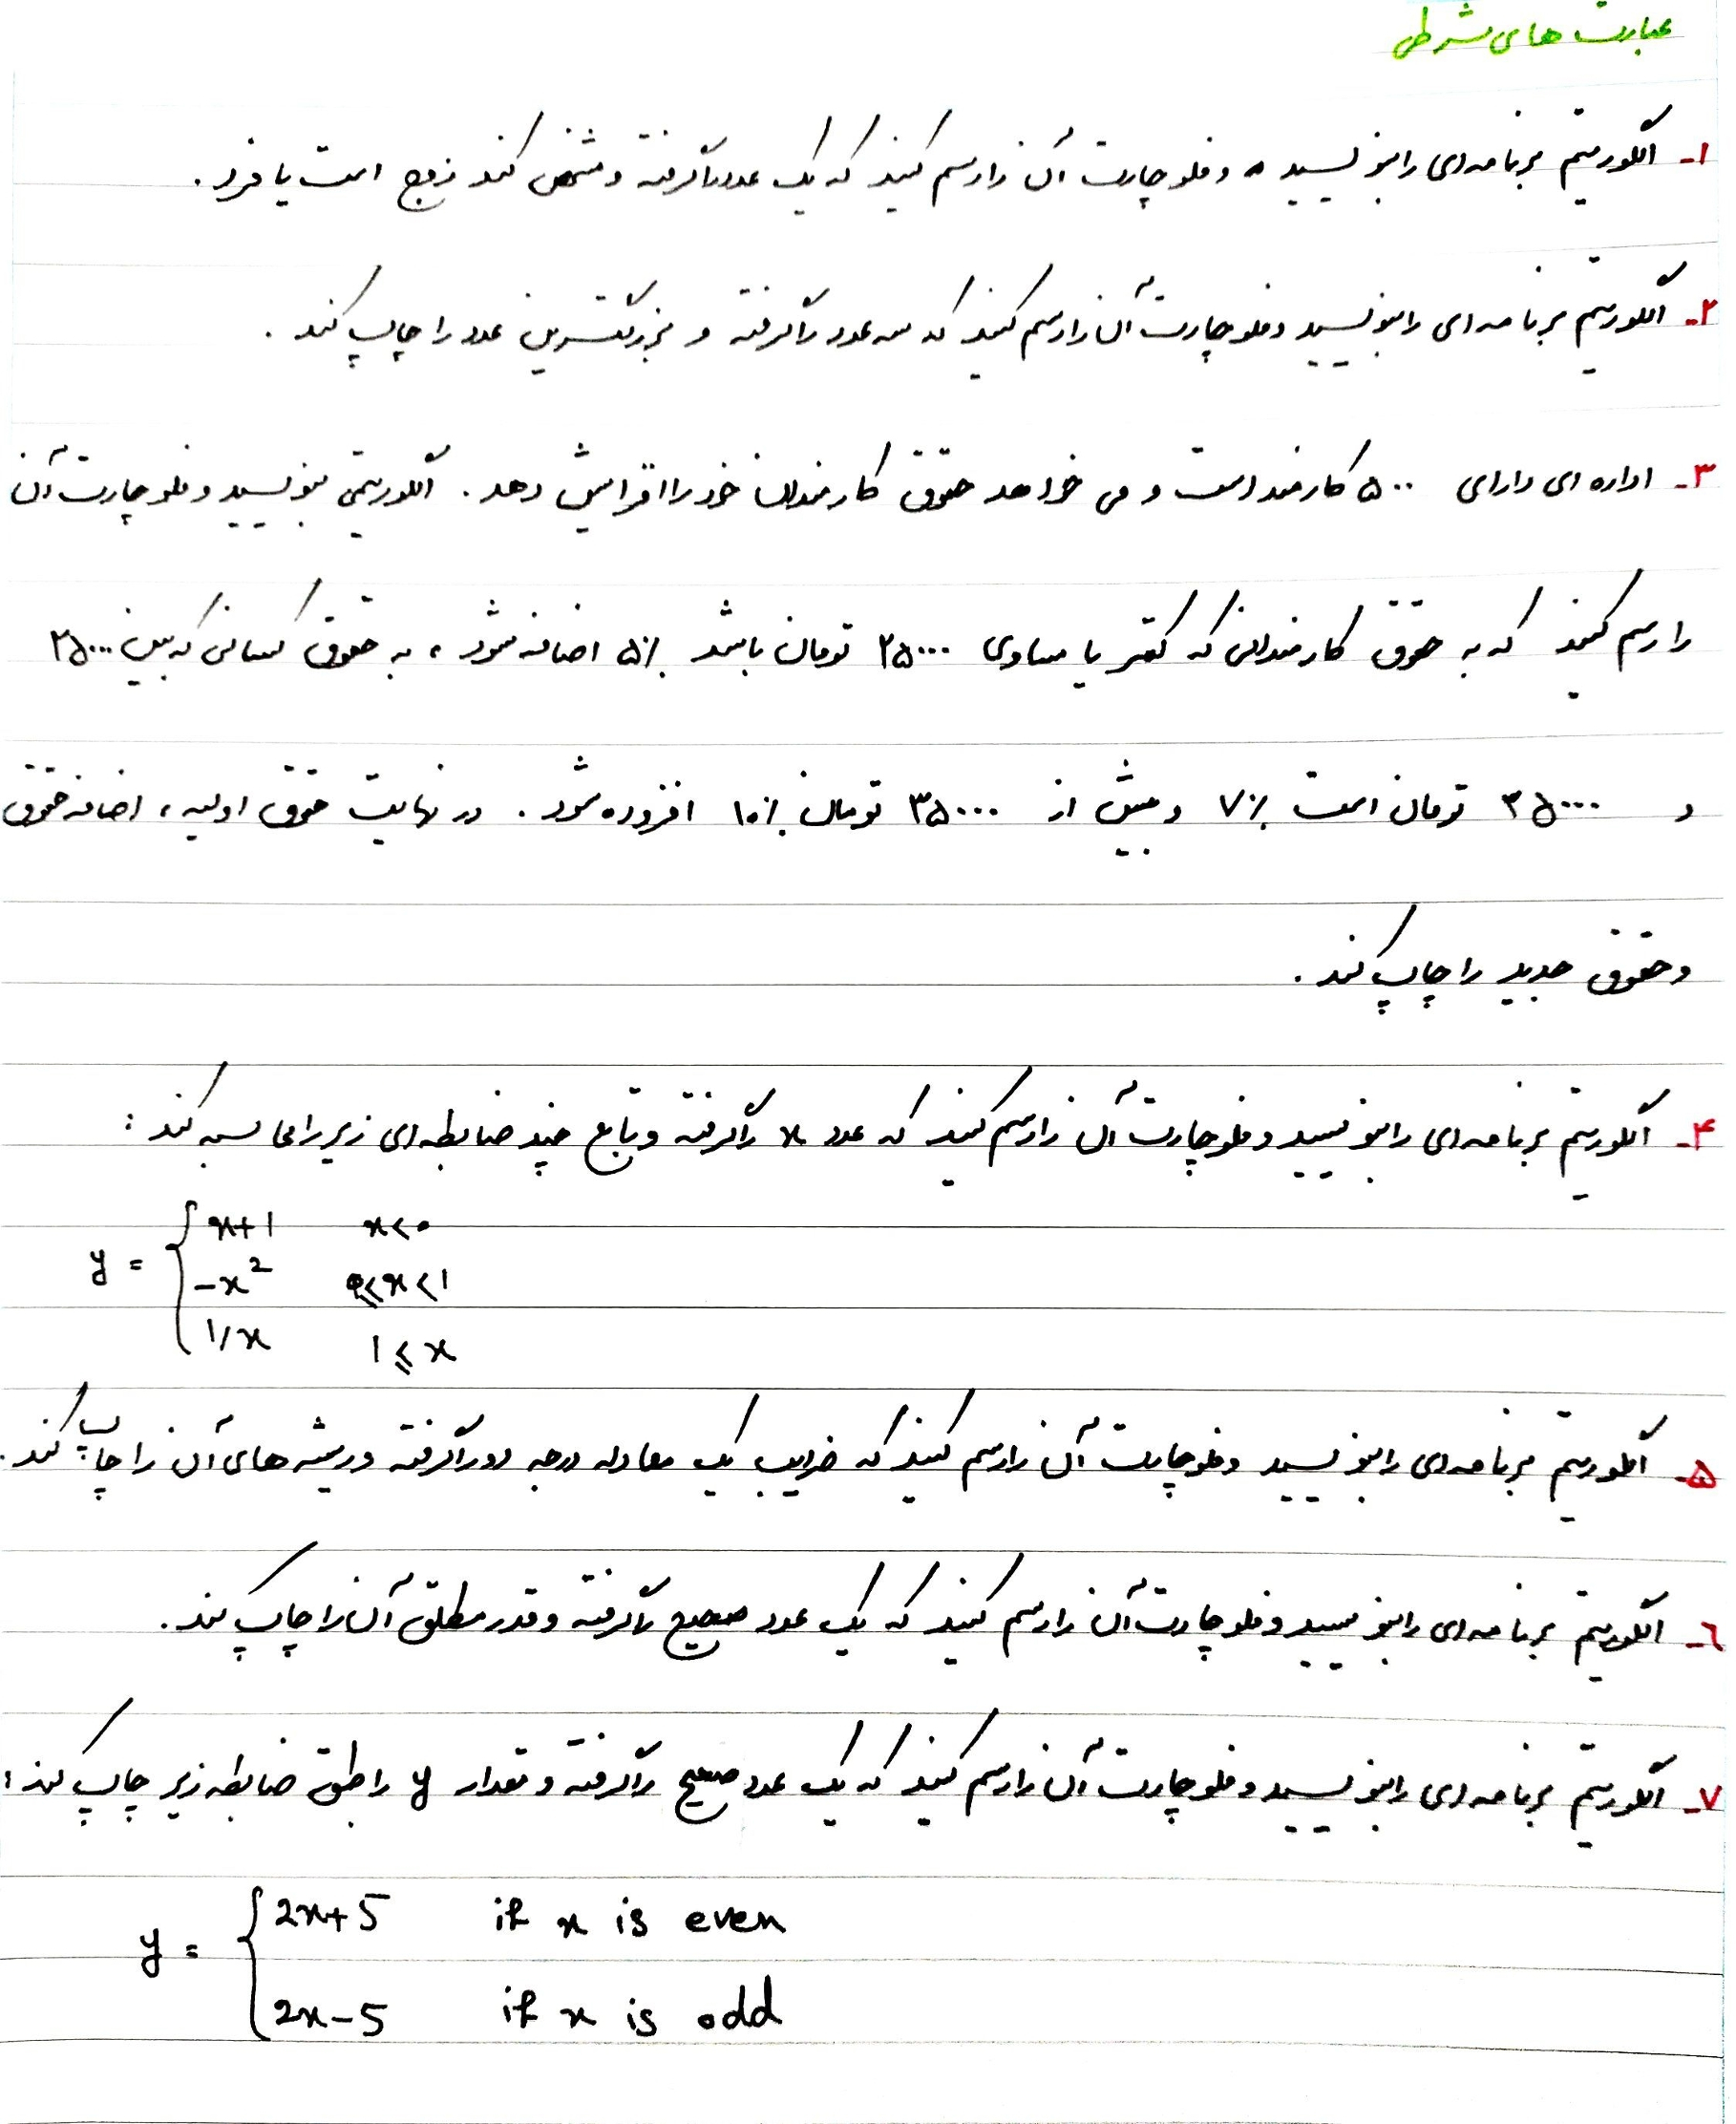 عبارت های شرطی
۱- الگوریتم برنامه‌ای را بنویسید و فلوچارت آن را رسم کنید که یک عدد را گرفته و مشخص کند زوج است یا فرد.
۲- الگوریتم برنامه‌ای را بنویسید و فلوچارت آن را رسم کنید که سه عدد را گرفته و بزرگترین عدد را چاپ کند.
۳- اداره‌ای دارای ۵۰۰ کارمند است و می خواهد حقوق کارمندان خود را افزایش دهد. الگوریتمی بنویسید و فلوچارت آن
را رسم کنید که به حقوق کارمندانی که کمتر یا مساوی ۲۵۰۰۰۰ تومان باشد ۵٪ اضافه شود، به حقوق کسانی که بین ۲۵۰۰۰۰
و ۳۵۰۰۰۰ تومان است ۷٪ و بیش از ۳۵۰۰۰۰ تومان ۱۰٪ افزوده شود. در نهایت حقوق اولیه، اضافه حقوق
و حقوق جدید را چاپ کند.
۴- الگوریتم برنامه‌ای را بنویسید و فلوچارت آن را رسم کنید که عدد x را گرفته و تابع چند ضابطه‌ای زیر را محاسبه کند:
y = { x+1 x<0
-x² 0⩽x<1
1/x 1⩽x
۵- الگوریتم برنامه‌ای را بنویسید و فلوچارت آن را رسم کنید که ضرایب یک معادله درجه دو را گرفته و ریشه های آن را چاپ کند.
۶- الگوریتم برنامه‌ای را بنویسید و فلوچارت آن را رسم کنید که یک عدد صحیح را گرفته و قدر مطلق آن را چاپ کند.
۷- الگوریتم برنامه‌ای را بنویسید و فلوچارت آن را رسم کنید که یک عدد صحیح را گرفته و مقدار y را طبق ضابطه زیر چاپ کند:
y = { 2x+5 if x is even
2x-5 if x is odd